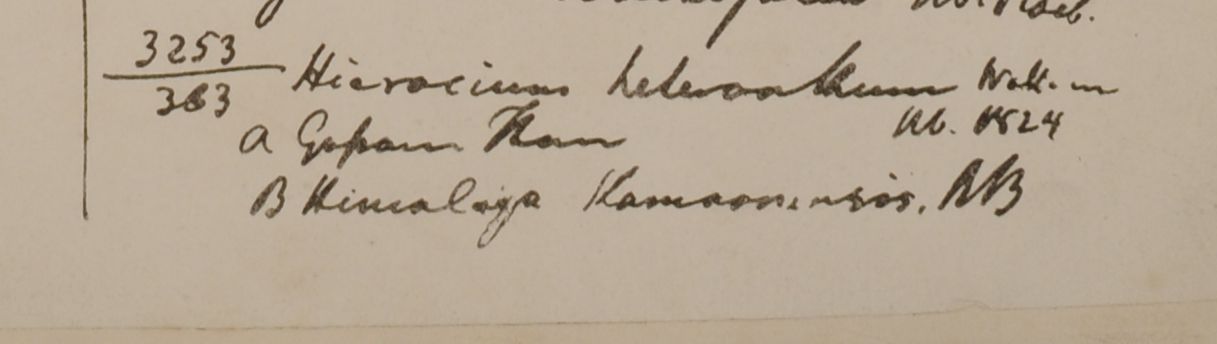 3253 Hieracium heteroakum Wall. in
363
Hb. 1824
a Gossain Than
B Himalaya Kamaonensis. RB